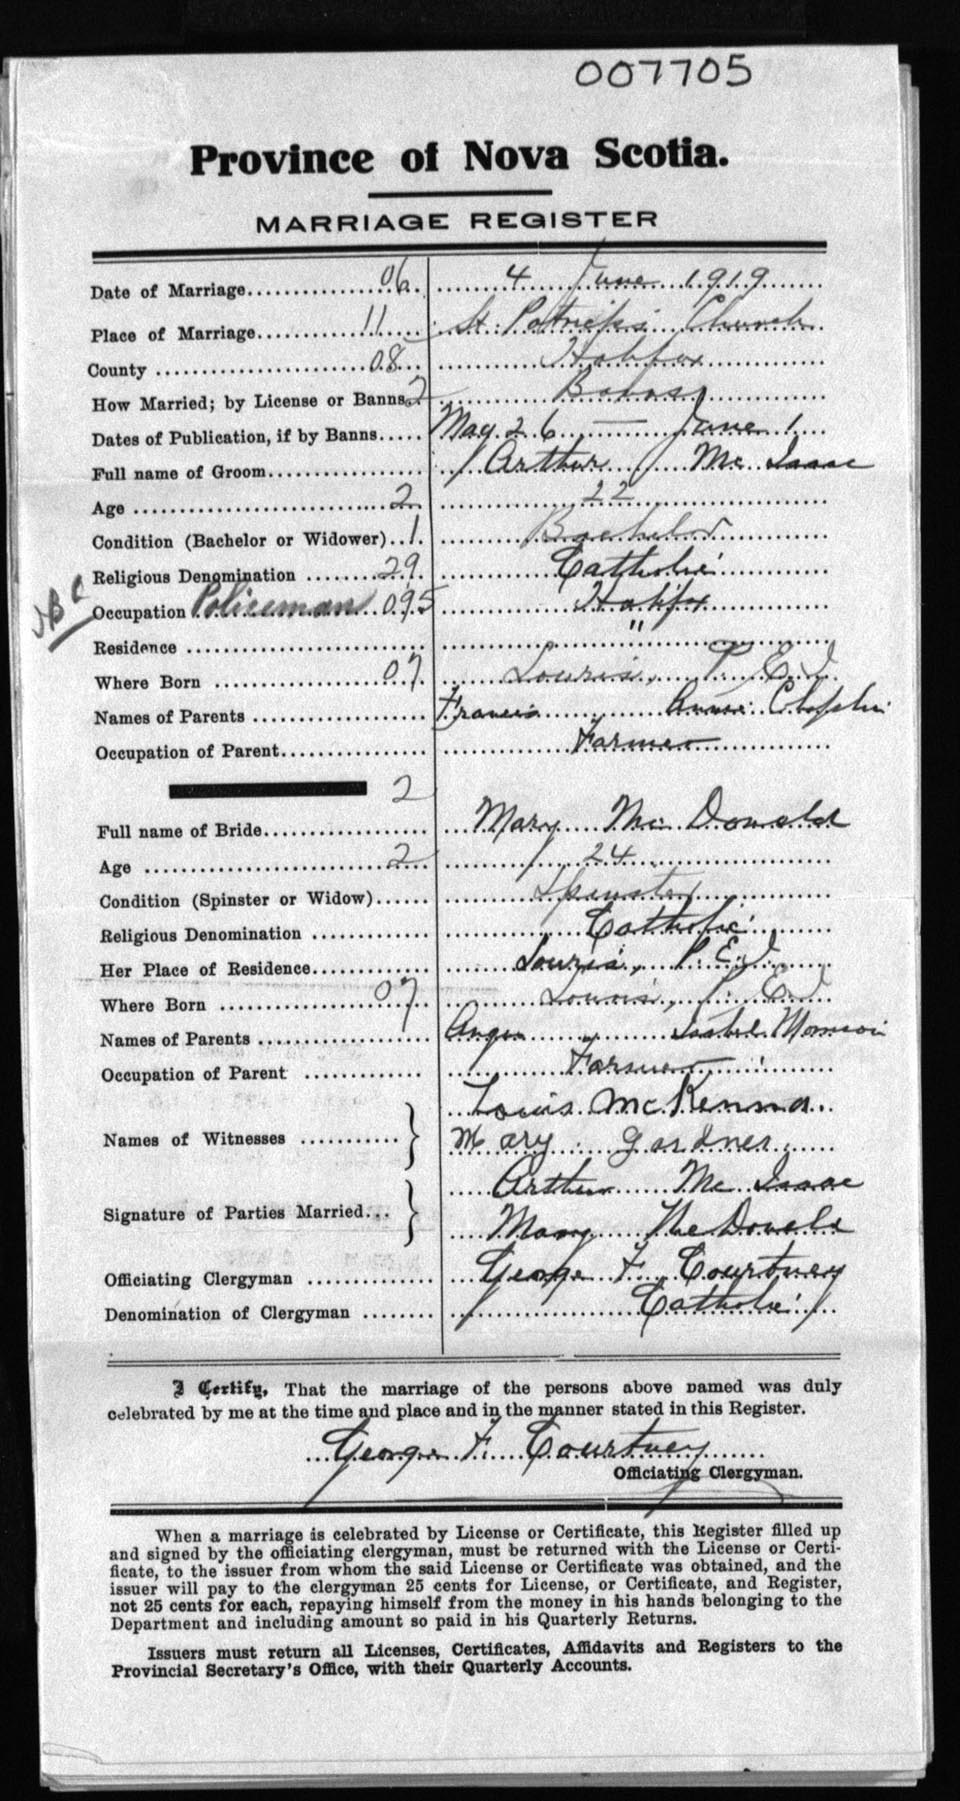 007705
Province of Nova Scotia.
MARRIAGE REGISTER
Date of Marriage 06 4 June 1919
Place of Marriage 11 St. Patrick's Church
County 08 Halifax
How Married; by License or Banns 2 Banns
Dates of Publication, if by Banns May 26 — June 1
Full name of Groom Arthur Mc Isaac
Age 2 22
Condition (Bachelor or Widower) 1 Bachelor
Religious Denomination 29 Catholic
Occupation Policeman 095 Halifax
Residence "
Where Born 07 Souris, P. E. I
Names of Parents Francis Annie
Occupation of Parent Farmer
2
Full name of Bride Mary Mc Donald
Age 2 24
Condition (Spinster or Widow) Spinster
Religious Denomination Catholic
Her Place of Residence Souris, P. E. I
Where Born 07 Souris, P. E I
Names of Parents Angus Isabel Morrison
Occupation of Parent Farmer
Louis McKenna
Names of Witnesses Mary Gardner
Arthur Mc Isaac
Signature of Parties Married Mary McDonald
Officiating Clergyman George F. Courtney
Denomination of Clergyman Catholic
I Certify, That the marriage of the persons above named was duly
celebrated by me at the time and place and in the manner stated in this Register.
George F. Courtney
Officiating Clergyman.
When a marriage is celebrated by License or Certificate, this Register filled up
and signed by the officiating clergyman, must be returned with the License or Certi-
ficate, to the issuer from whom the said License or Certificate was obtained, and the
issuer will pay to the clergyman 25 cents for License, or Certificate, and Register,
not 25 cents for each, repaying himself from the money in his hands belonging to the
Department and including amount so paid in his Quarterly Returns.
Issuers must return all Licenses, Certificates, Affidavits and Registers to the
Provincial Secretary's Office, with their Quarterly Accounts.